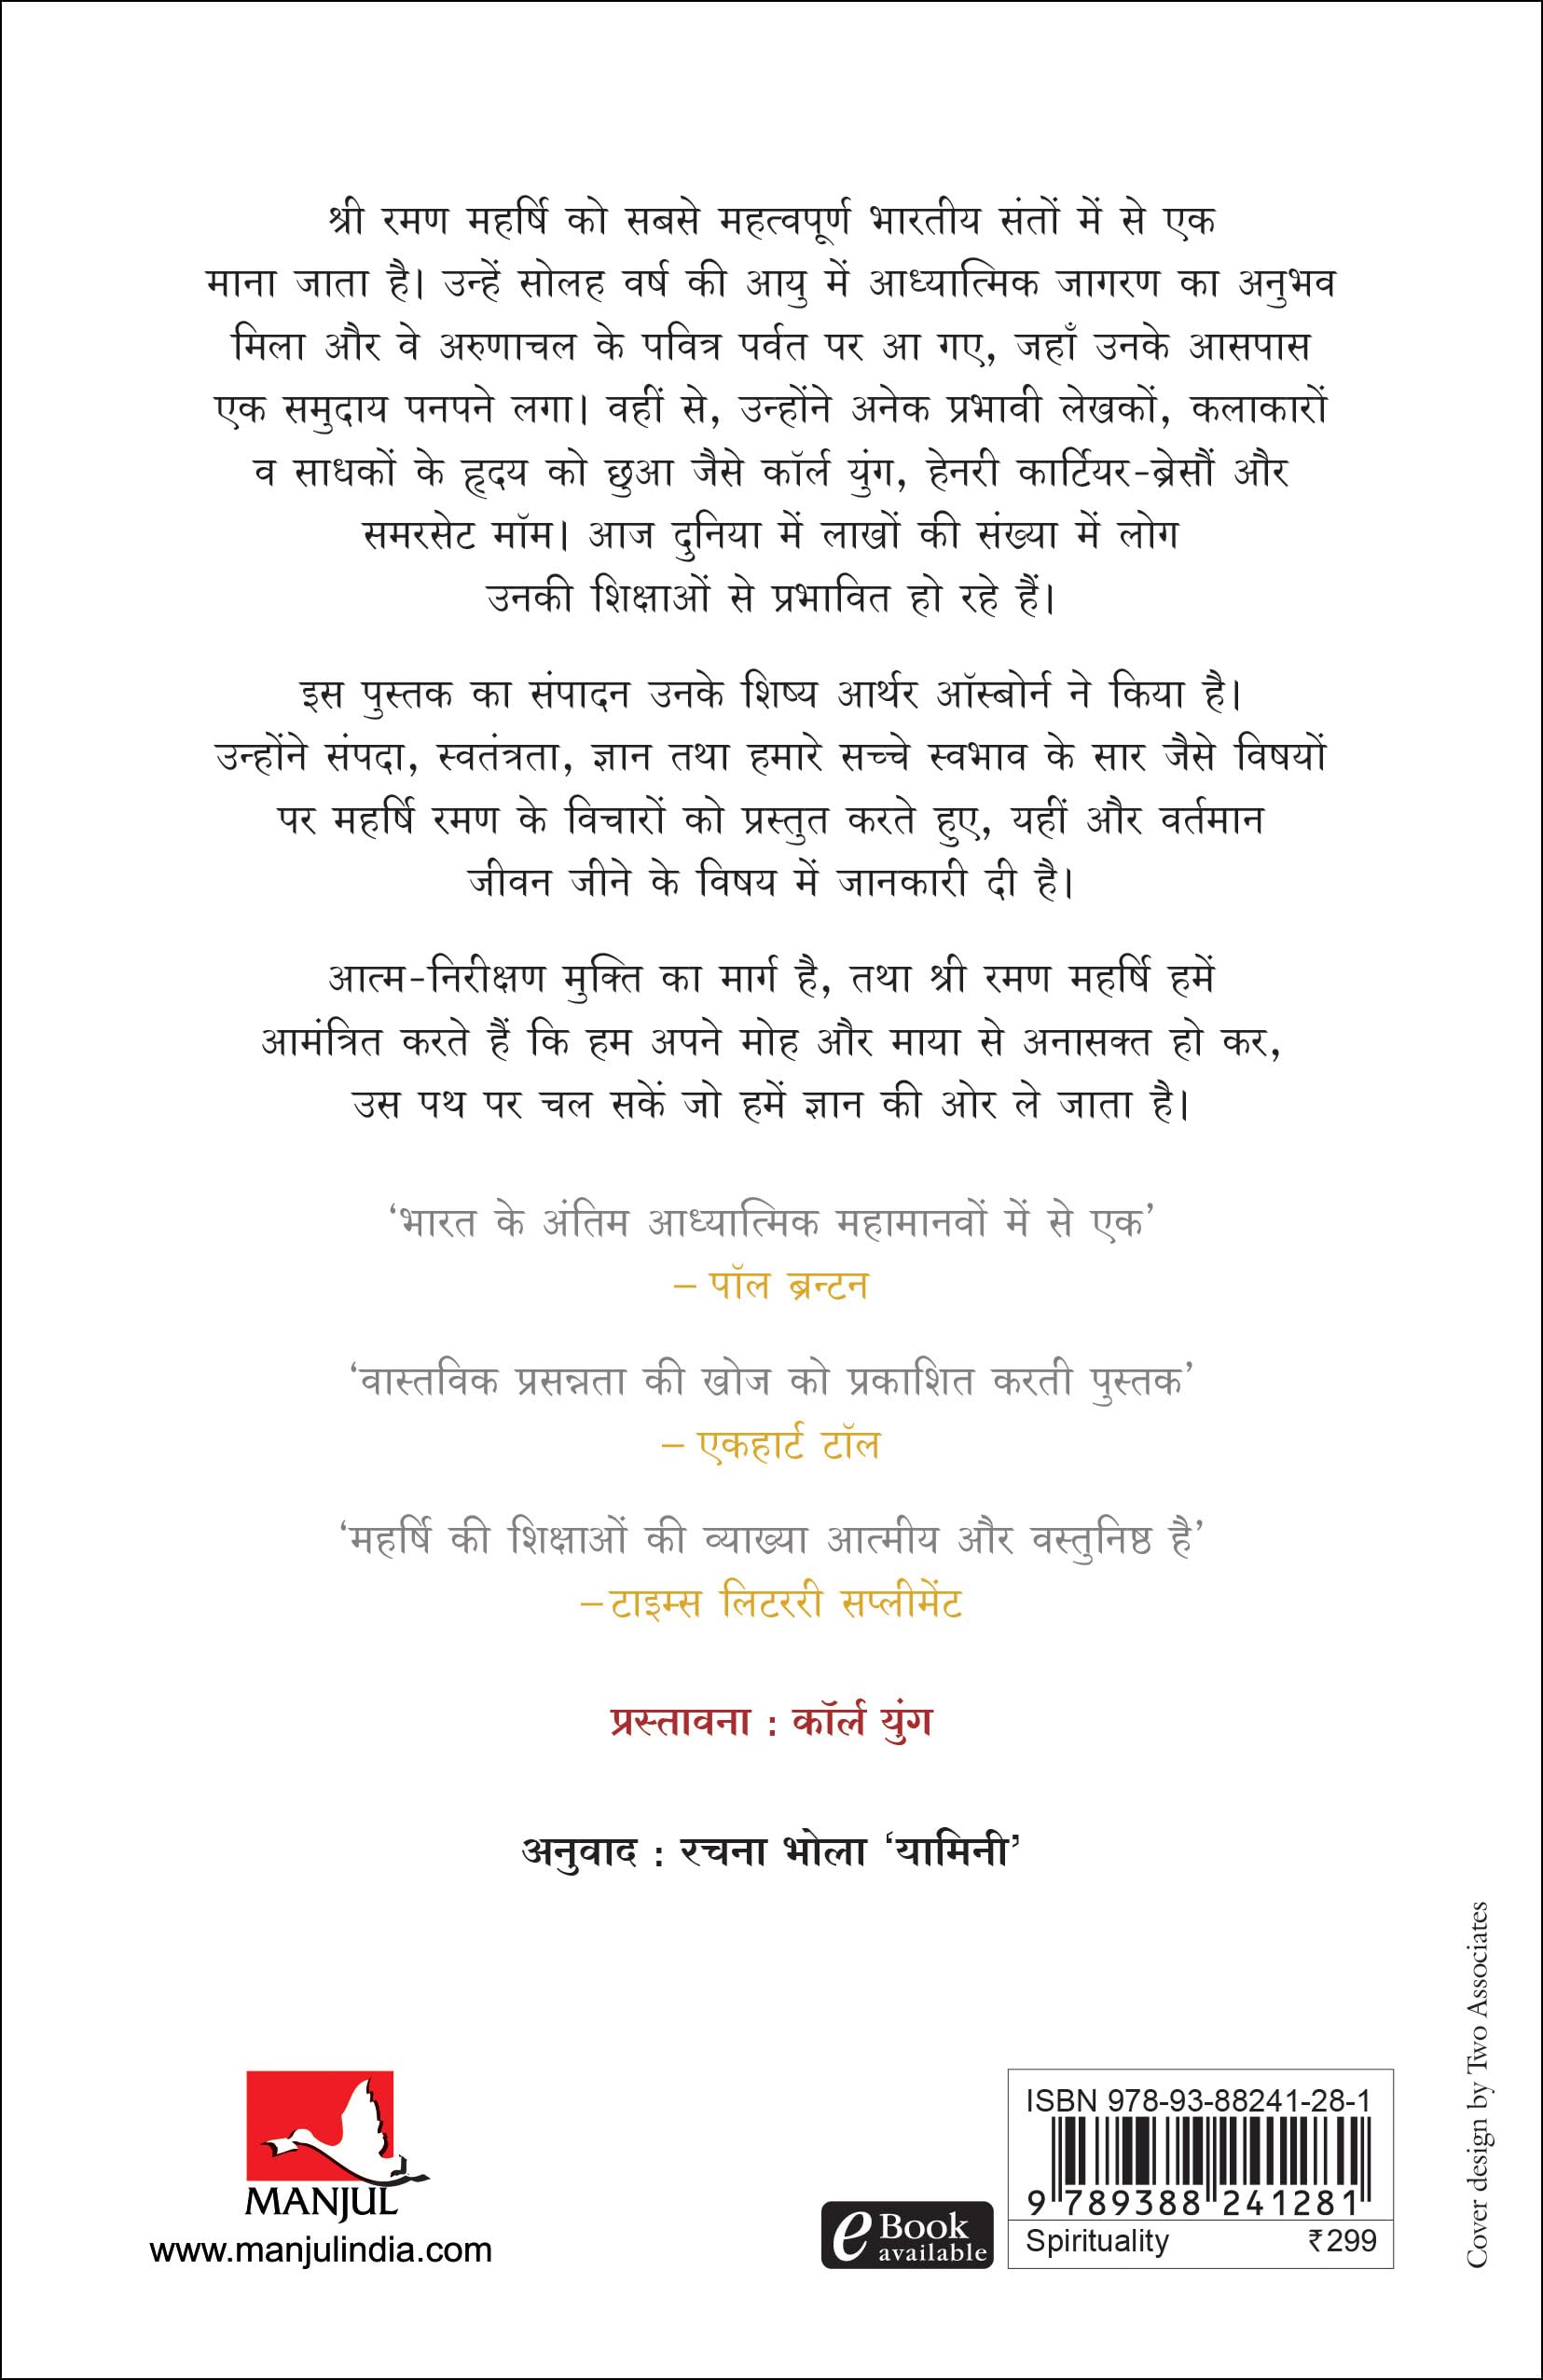 श्री रमण महर्षि को सबसे महत्वपूर्ण भारतीय संतों में से एक
माना जाता है। उन्हें सोलह वर्ष की आयु में आध्यात्मिक जागरण का अनुभव
मिला और वे अरुणाचल के पवित्र पर्वत पर आ गए, जहाँ उनके आसपास
एक समुदाय पनपने लगा। वहीं से, उन्होंने अनेक प्रभावी लेखकों, कलाकारों
व साधकों के हृदय को छुआ जैसे कॉर्ल युंग, हेनरी कार्टियर-ब्रेसौं और
समरसेट मॉम। आज दुनिया में लाखों की संख्या में लोग
उनकी शिक्षाओं से प्रभावित हो रहे हैं।
इस पुस्तक का संपादन उनके शिष्य आर्थर ऑस्बोर्न ने किया है।
उन्होंने संपदा, स्वतंत्रता, ज्ञान तथा हमारे सच्चे स्वभाव के सार जैसे विषयों
पर महर्षि रमण के विचारों को प्रस्तुत करते हुए, यहीं और वर्तमान
जीवन जीने के विषय में जानकारी दी है।
आत्म-निरीक्षण मुक्ति का मार्ग है, तथा श्री रमण महर्षि हमें
आमंत्रित करते हैं कि हम अपने मोह और माया से अनासक्त हो कर,
उस पथ पर चल सकें जो हमें ज्ञान की ओर ले जाता है।
‘भारत के अंतिम आध्यात्मिक महामानवों में से एक’
– पॉल ब्रन्टन
‘वास्तविक प्रसन्नता की खोज को प्रकाशित करती पुस्तक’
– एकहार्ट टॉल
‘महर्षि की शिक्षाओं की व्याख्या आत्मीय और वस्तुनिष्ठ है’
–टाइम्स लिटररी सप्लीमेंट
प्रस्तावना : कॉर्ल युंग
अनुवाद : रचना भोला ‘यामिनी’
MANJUL
www.manjulindia.com
eBook
available
ISBN 978-93-88241-28-1
9 789388 241281
Spirituality ₹299
Cover design by Two Associates